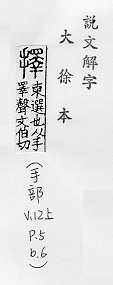 說文解字
大徐本
擇
柬選也从手
睪聲丈伯切
(手部
V.12上
P.5
b.6)